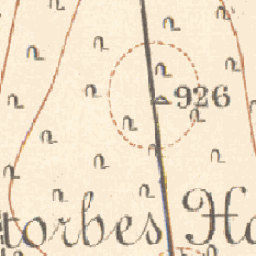 926
torbes Ha